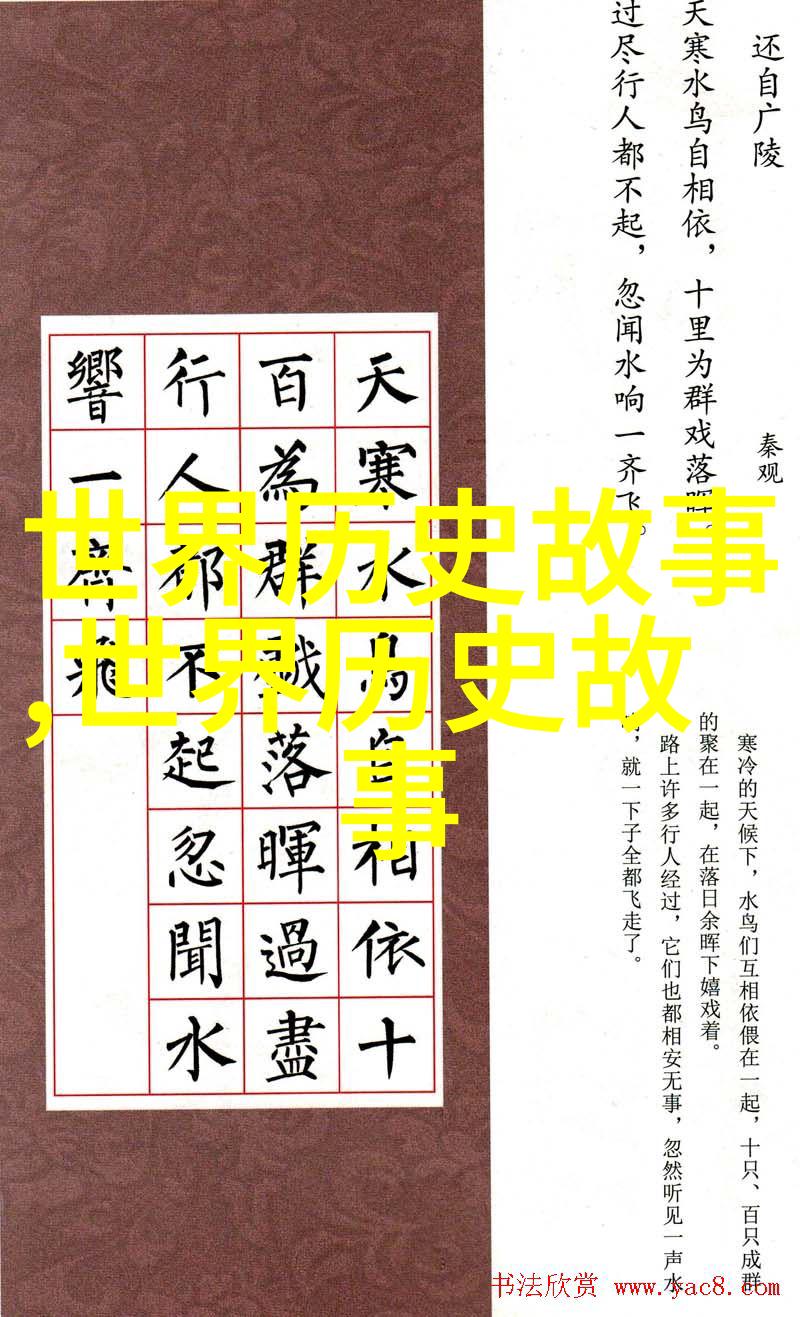 还自广陵
秦观
天寒水鸟自相依，十里为群戏落晖。
过尽行人都不起，忽闻水响一齐飞。
天寒水鳥自相依十
百為群戲落暉過盡
行人都不起忽聞水
響一齊飛
世界历史故事
,世界历史故
事
寒冷的天候下，水鸟们互相依偎在一起，十只、百只成群
的聚在一起，在落日余晖下嬉戏着。
路上许多行人经过，它们也都相安无事，忽然听见一声水
响，就一下子全都飞走了。
书法欣赏 www.yac8.com